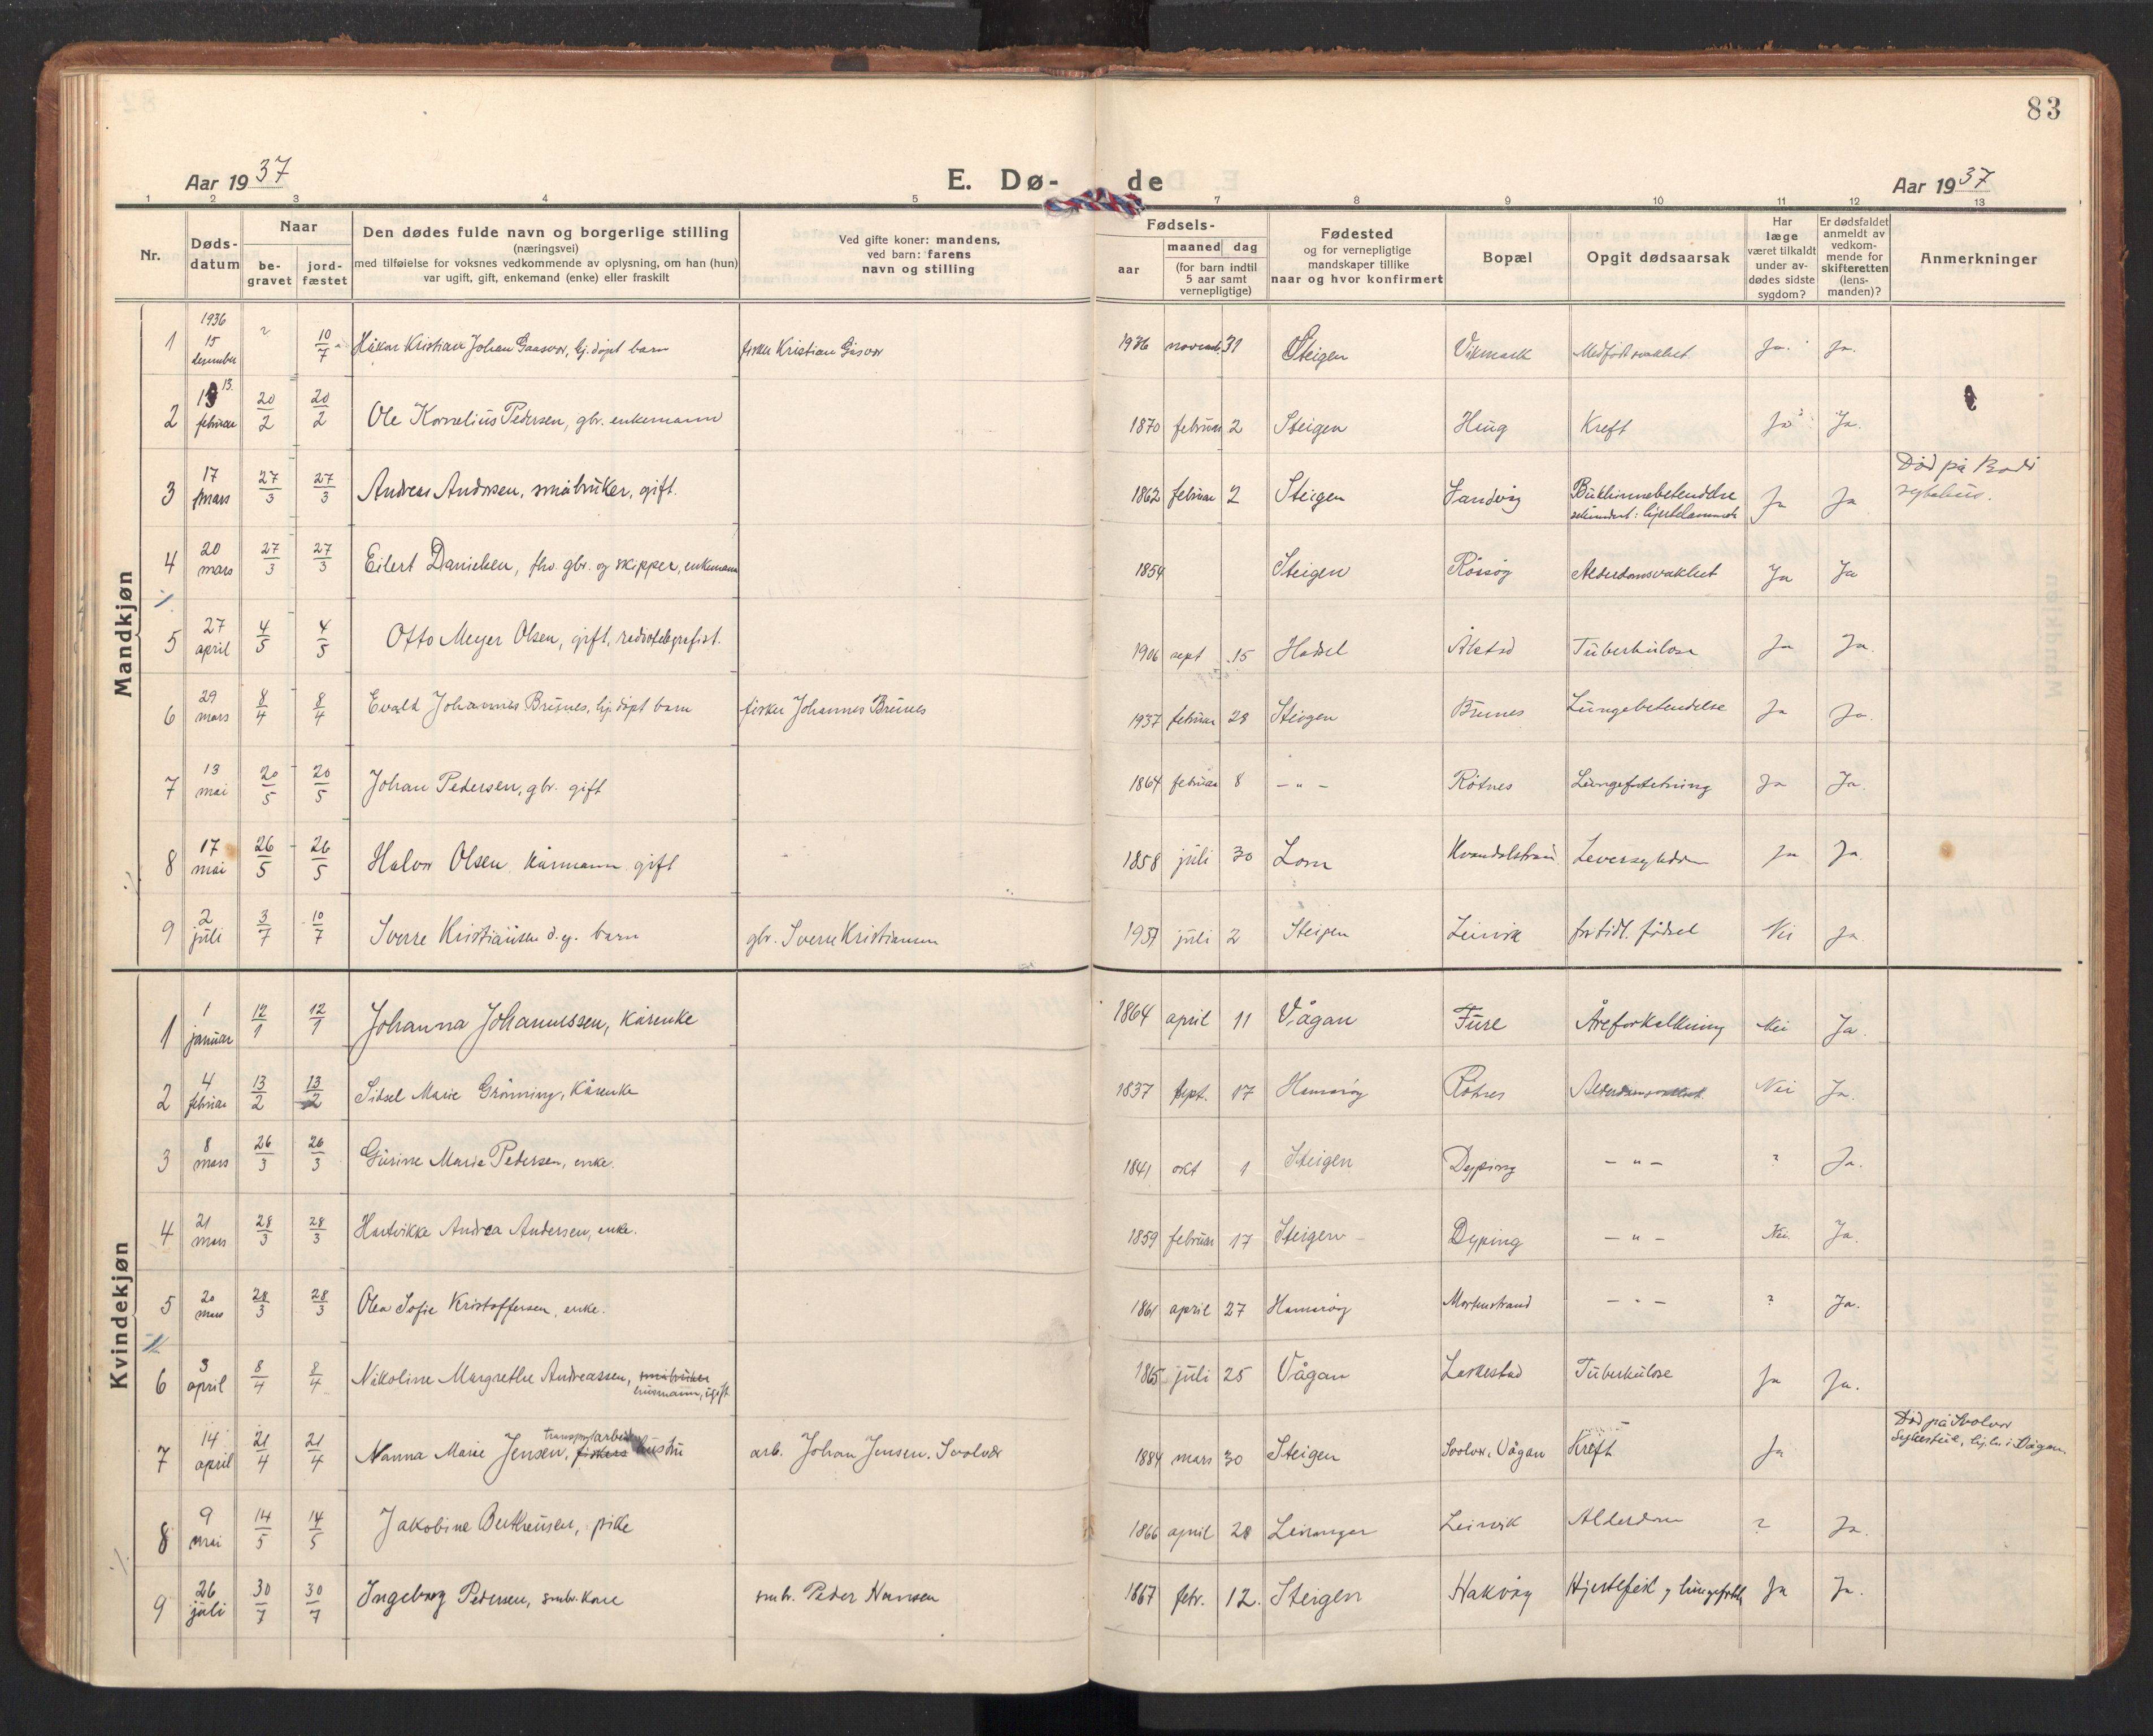 83
Aar 1937
E. Dø-
de
Aar 1937
1 2 3 4 5 7 8 9 10 11 12 13
Nr.
Døds-
datum
Naar
be-
gravet
jord-
fæstet
Den dødes fulde navn og borgerlige stilling
(næringsvei)
med tilføielse for voksnes vedkommende av oplysning, om han (hun)
var ugift, gift, enkemand (enke) eller fraskilt
Ved gifte koner: mandens,
ved barn: farens
navn og stilling
Fødsels-
aar
maaned dag
(for barn indtil
5 aar samt
vernepligtige)
Fødested
og for vernepligtige
mandskaper tillike
naar og hvor konfirmert
Bopæl
Opgit dødsaarsak
Har
læge
været tilkaldt
under av-
dødes sidste
sygdom?
Er dødsfaldet
anmeldt av
vedkom-
mende for
skifteretten
(lens-
manden)?
Anmerkninger
Mandkjøn
1 1936 15 desember ? 10/7 Håkon Kristian Johan Gaasvær, hj.døpt barn fisker Kristian Gåsvær 1936 novemb. 31 Steigen Vikmark Medfødt svakhet Ja. Ja.
2 13. februar 20/2 20/2 Ole Kornelius Pedersen, gbr. enkemann 1870 februar 2 Steigen Haug Kreft Ja Ja.
3 17 mars 27/3 27/3 Andreas Andersen, småbruker, gift. 1862 februar 2 Steigen Sandvåg Bukhinnebetendelse Ja Ja Død på Bodø
sekundært: hjertelammelse sykehus.
4 20 mars 27/3 27/3 Eilert Danielsen, fhv. gbr. og skipper, enkemann 1854 Steigen Røssøy Alderdomsvakhet Ja Ja
5 27 april 4/5 4/5 Otto Meyer Olsen, gift, radiotelegrafist. 1906 sept 15 Hadsel Ålstad Tuberkulose Ja Ja.
6 29 mars 8/4 8/4 Evald Johannes Brunes, hj.døpt barn fisker Johannes Brunes 1937 februar 28 Steigen Brunes Lungebetendelse Ja Ja.
7 13 mai 20/5 20/5 Johan Pedersen, gbr. gift 1864 februar 8 — " — Røtnes Lungefortetning Ja Ja.
8 17 mai 26/5 26/5 Halvor Olsen kårmann gift 1858 juli 30 Lom Kvandalstrand Leversykdom Ja Ja.
9 2 juli 3/7 10/7 Sverre Kristiansen d.y. barn gbr. Sverre Kristiansen 1937 juli 2 Steigen Leinvik for tidl. fødsel Nei Ja
Kvindekjøn
1 1 januar 12/1 12/1 Johanna Johannessen, kårenke 1864 april 11 Vågan Fure Åreforkalkning Nei Ja.
2 4 februar 13/2 13/2 Sidsel Marie Grønning, kårenke 1837 sept. 17 Hamarøy Røtnes Alderdomsvakhet Nei Ja.
3 8 mars 26/3 26/3 Gurine Marie Pedersen, enke. 1841 okt 1 Steigen Dyping — " — ? Ja.
4 21 mars 28/3 28/3 Hartvikke Andrea Andersen, enke. 1859 februar 17 Steigen Dyping — " — Nei Ja.
5 20 mars 28/3 28/3 Olea Sofie Kristoffersen, enke. 1861 april 27 Hamarøy Mortenstrand — " — ? Ja.
6 3 april 8/4 8/4 Nikoline Margrethe Andreassen, småbruker 1865 juli 25 Vågan Laskestad Tuberkulose Ja Ja.
husmann, ugift
7 14 april 21/4 21/4 Nanna Marie Jensen, transportarbeider fiskers hustru arb. Johan Jensen. Svolvær 1884 mars 30 Steigen Svolvær, Vågan Kreft Ja Død på Svolvær
Sykestue, hj.h. i Vågan.
8 9 mai 14/5 14/5 Jakobine Bertheusen, pike 1866 april 28 Leiranger Leinvik Alderdom ? Ja.
9 26 juli 30/7 30/7 Ingeborg Pedersen, smbr. kone smbr. Peder Hansen 1867 febr. 12. Steigen Hakvåg Hjertefeil Ja Ja.